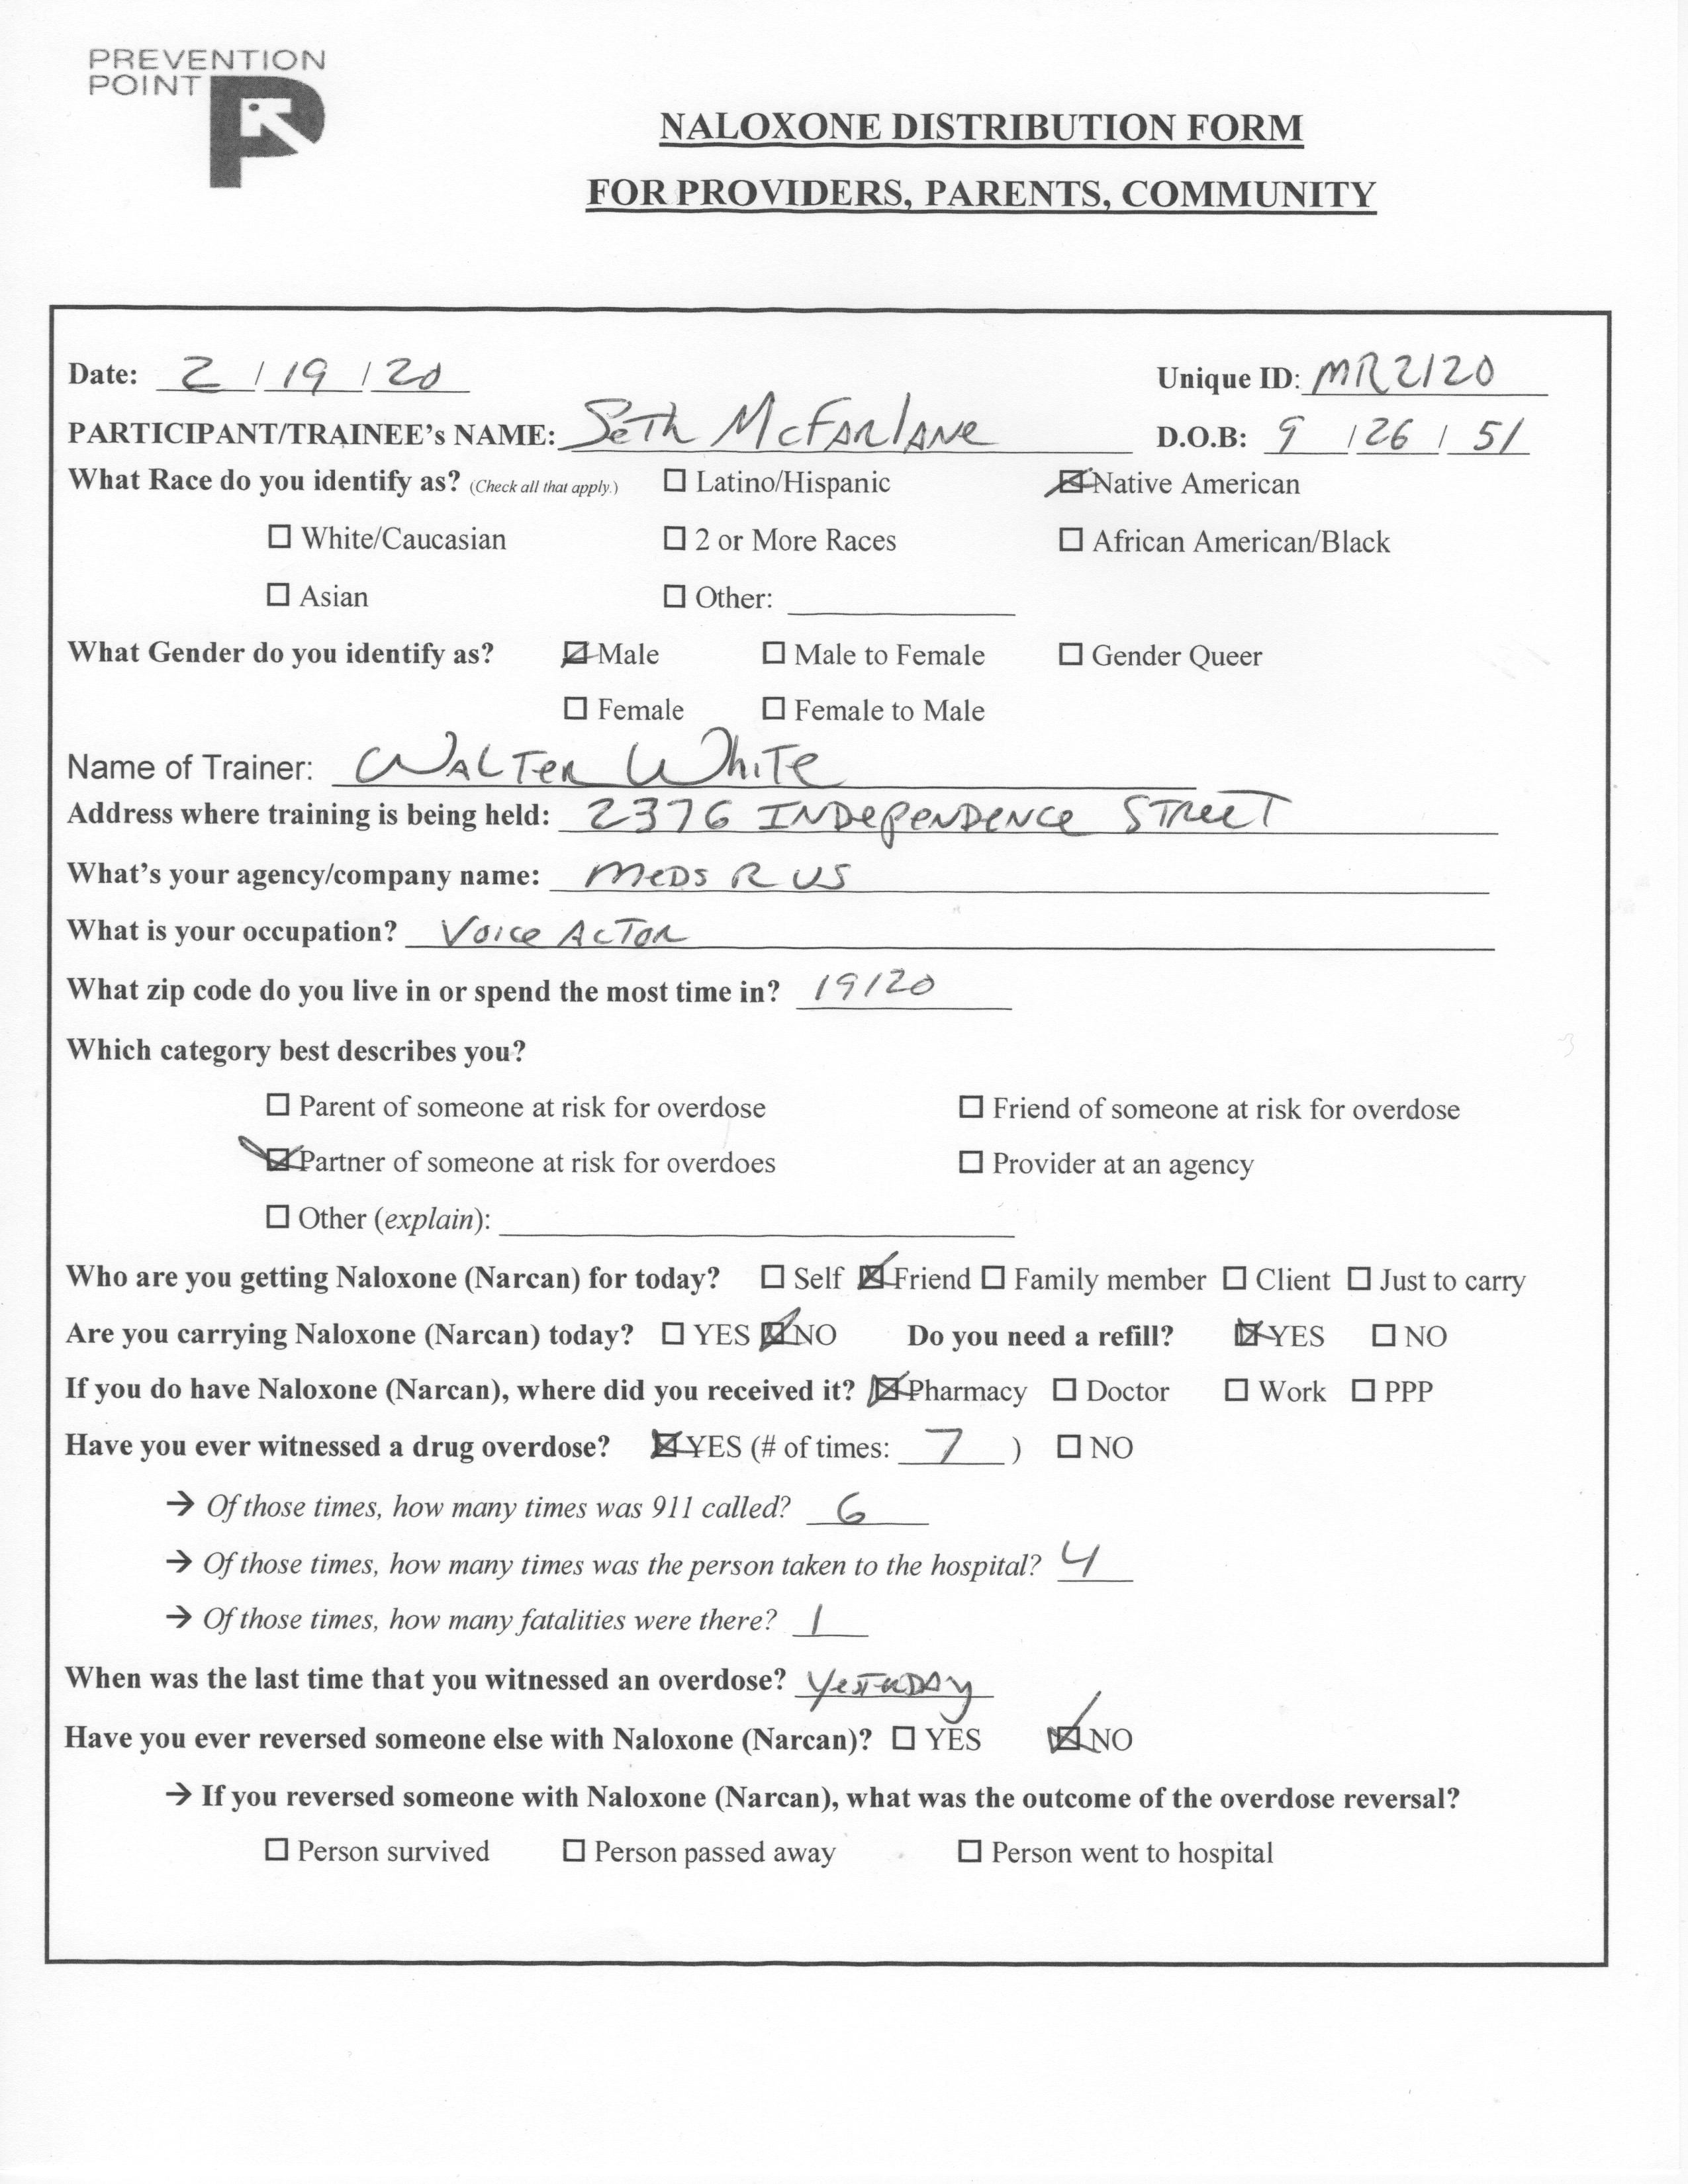 PREVENTION
POINT
NALOXONE DISTRIBUTION FORM
FOR PROVIDERS, PARENTS, COMMUNITY
Date: 2 / 19 / 20 Unique ID: MR2120
PARTICIPANT/TRAINEE's NAME: SeTh McFARlANe D.O.B: 9 / 26 / 51
What Race do you identify as? (Check all that apply.) ☐ Latino/Hispanic ☒ Native American
☐ White/Caucasian ☐ 2 or More Races ☐ African American/Black
☐ Asian ☐ Other:
What Gender do you identify as? ☒ Male ☐ Male to Female ☐ Gender Queer
☐ Female ☐ Female to Male
Name of Trainer: WALTER WhiTe
Address where training is being held: 2376 INDePeNDeNce STReeT
What's your agency/company name: MeDs R US
What is your occupation? Voice AcToR
What zip code do you live in or spend the most time in? 19120
Which category best describes you?
☐ Parent of someone at risk for overdose ☐ Friend of someone at risk for overdose
☒ Partner of someone at risk for overdoes ☐ Provider at an agency
☐ Other (explain):
Who are you getting Naloxone (Narcan) for today? ☐ Self ☒ Friend ☐ Family member ☐ Client ☐ Just to carry
Are you carrying Naloxone (Narcan) today? ☐ YES ☒ NO Do you need a refill? ☒ YES ☐ NO
If you do have Naloxone (Narcan), where did you received it? ☒ Pharmacy ☐ Doctor ☐ Work ☐ PPP
Have you ever witnessed a drug overdose? ☒ YES (# of times: 7 ) ☐ NO
→ Of those times, how many times was 911 called? 6
→ Of those times, how many times was the person taken to the hospital? 4
→ Of those times, how many fatalities were there? 1
When was the last time that you witnessed an overdose? YesTeRDAy
Have you ever reversed someone else with Naloxone (Narcan)? ☐ YES ☒ NO
→ If you reversed someone with Naloxone (Narcan), what was the outcome of the overdose reversal?
☐ Person survived ☐ Person passed away ☐ Person went to hospital